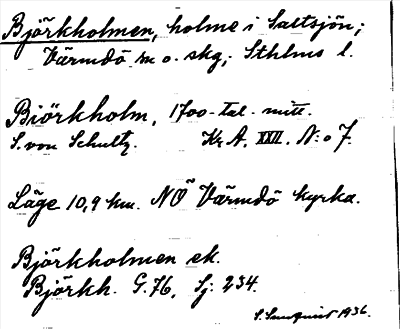 Björkholmen, holme i Saltsjön;
Värmdö sn o. skg, Sthlms l.
Biörkholm, 1700-tal. mitt.
S. von Schultz. Kr. A. XXII. N:o 7.
Läge 10,9 km. NÖ Värmdö kyrka.
Björkholmen ek.
Björkh. G. 76, Sj: 234.
S. 1936.